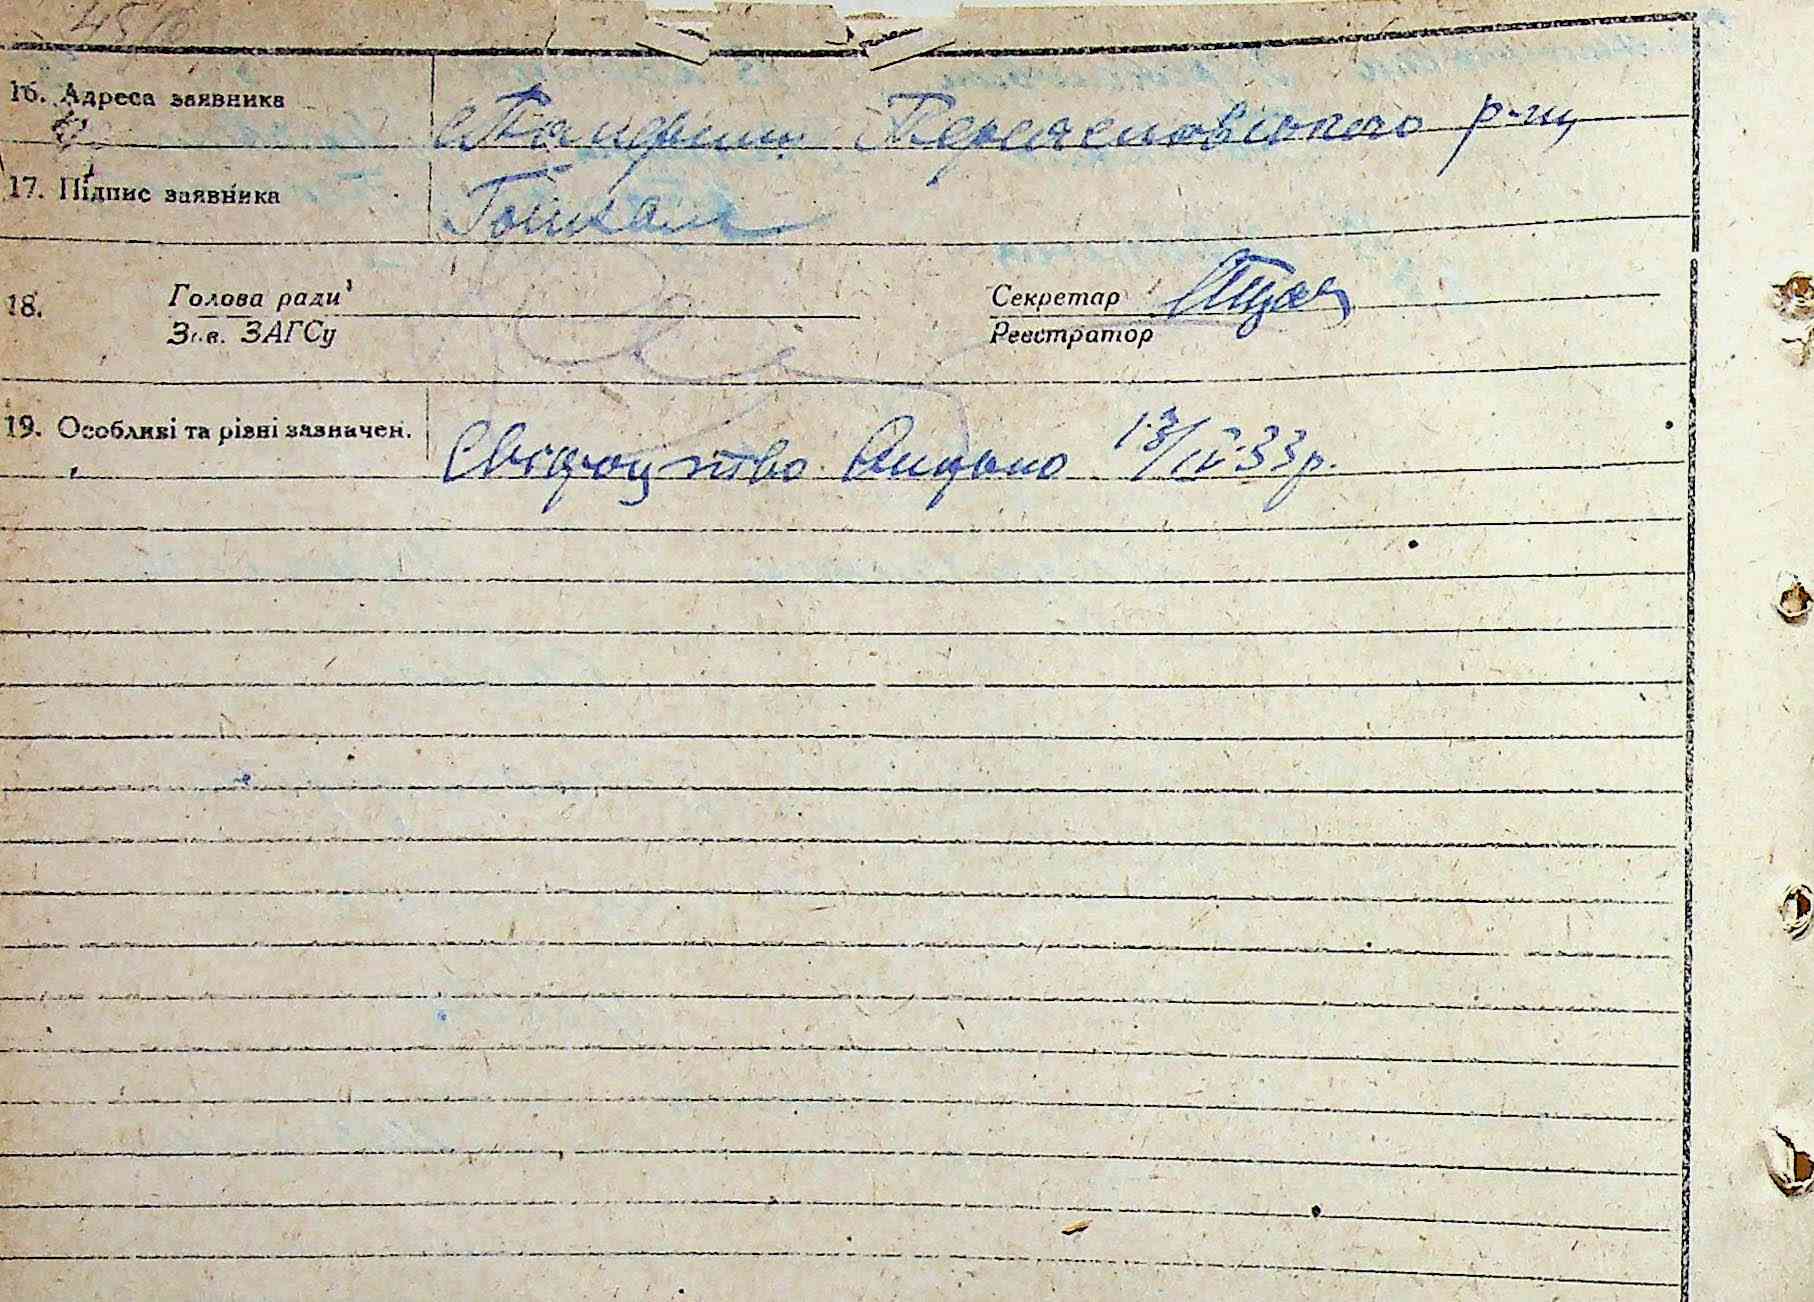 16. Адреса заявника
с Помокли Переяславського р-ну
17. Підпис заявника
18.
Голова ради
Секретар
Зав. ЗАГСу
Реєстратор
19. Особливі та різні зазначен.
Свідоцтво Видано 13/IV 33 р.